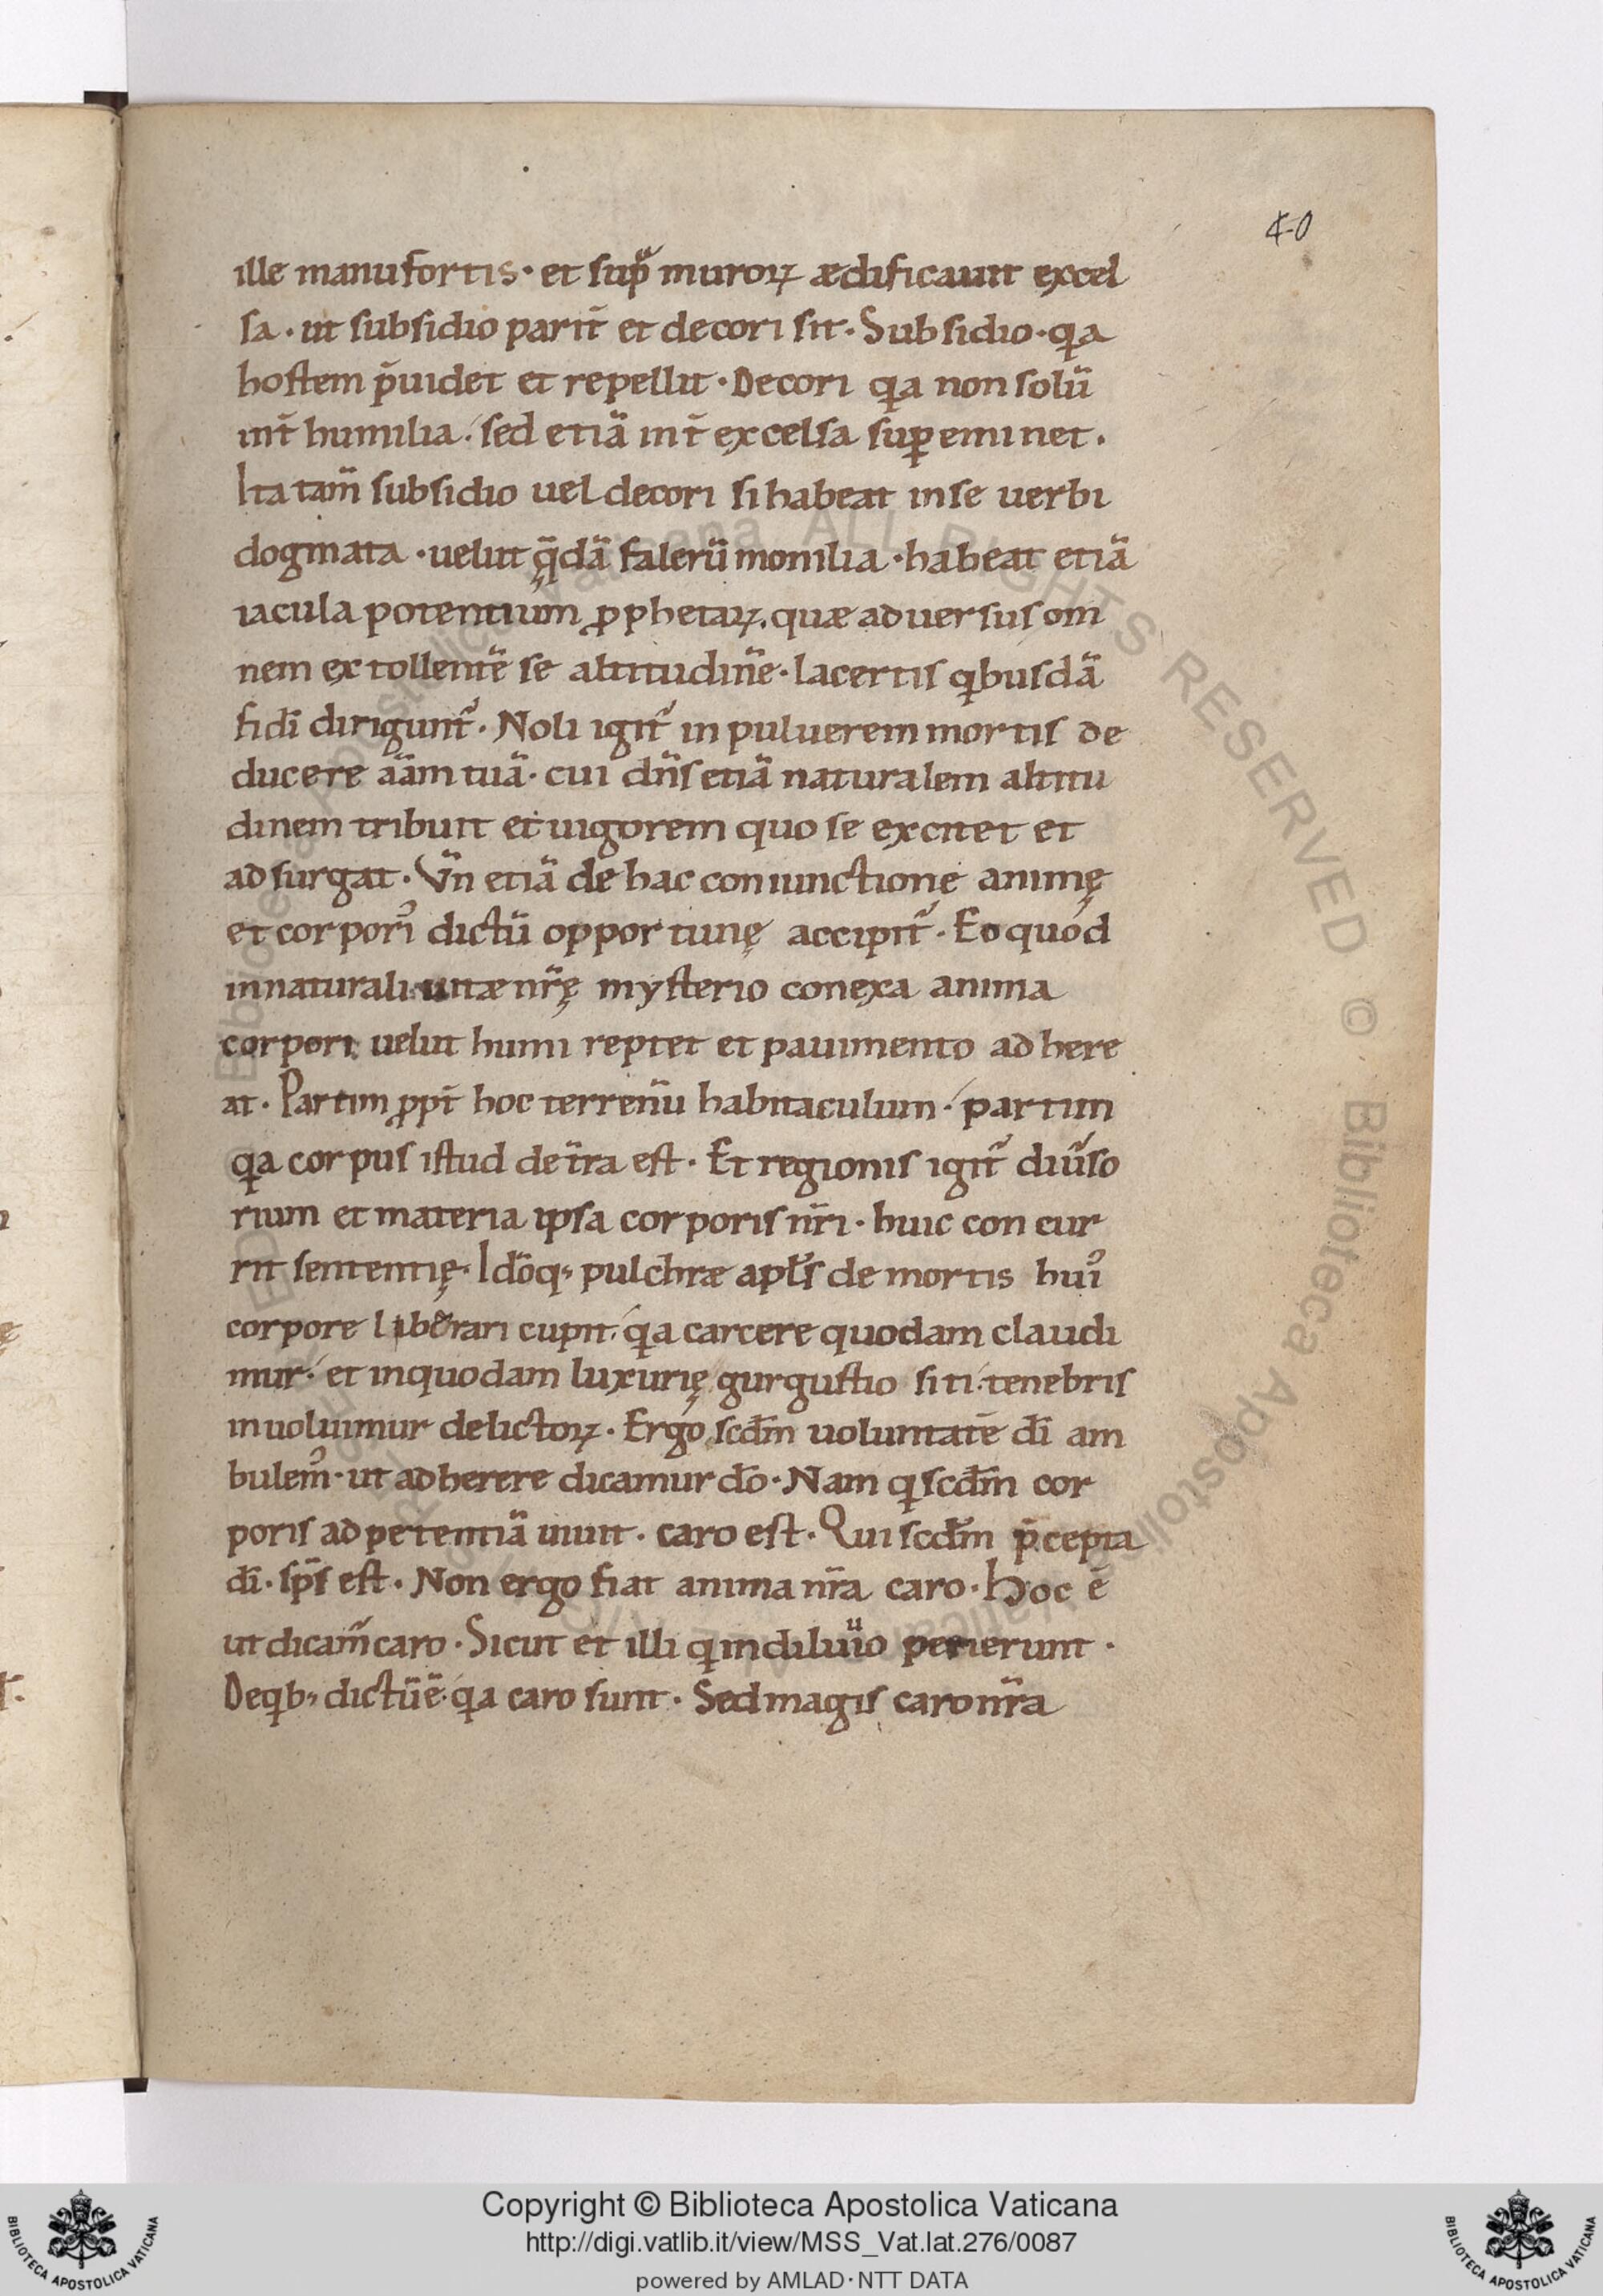 40
ille manufortis· et sup̃ muroꝝ ædificauit excel
sa· ut subsidio parit̄ et decori sit· Subsidio· q̵a
hostem p̄uidet et repellit· Decori q̵a non solū
int̄ humilia· sed etiā int̄ excelsa suꝑeminet·
Ita tam̄ subsidio uel decori si habeat inse uerbi
dogmata· uelut q̄dā falerū monilia· habeat etiā
iacula potentium ꝓphetaꝝ· quæ aduersus om
nem extollentē se altitudinē· lacertis qbusdā
fidī dirigunt᷑· Noli igit᷑ in puluerem mortis de
ducere āam tuā· cui dn̄s etiā naturalem altitu
dinem tribuit et uigorem quo se excitet et
adsurgat· Vn̄ etiā de hac coniunctione animę
et corporiꝰ dictū oppor tunę accipit᷑· Eo quod
innaturali uitæ nr̄ę mysterio conexa anima
corpori uelut humi reptet et pauimento adhere
at· Partim ꝓpt̄ hoc terrenū habitaculum· partim
q̵a corpus istud det̄ra est· Et regionis igit᷑ diu᷑so
rium et materia ipsa corporis nr̄i· huic con cur
rit sententię· Idōq; pulchræ apl̄s de mortis huiꝰ
corpore liberari cupit· q̵a carcere quodam claudi
mur· et inquodam luxurię gurgustio siti· tenebris
inuoluimur delictoꝝ· Ergo scd̄m uoluntatē dī am
bulemꝰ· ut adherere dicamur dō· Nam q scd̄m cor
poris adpetentiā uiuit· caro est· Qui scd̄m p̄cepta
dī· sp̄s est· Non ergo fiat anima nr̄a caro· Hoc ē
ut dicam̄ caro· Sicut et illi q indiluuio perierunt·
Deqb; dictū ē· q̵a caro sunt· Sed magis caro nr̄a
Copyright © Biblioteca Apostolica Vaticana
http://digi.vatlib.it/view/MSS_Vat.lat.276/0087
powered by AMLAD·NTT DATA
BIBLIOTECA APOSTOLICA VATICANA
BIBLIOTECA APOSTOLICA VATICANA